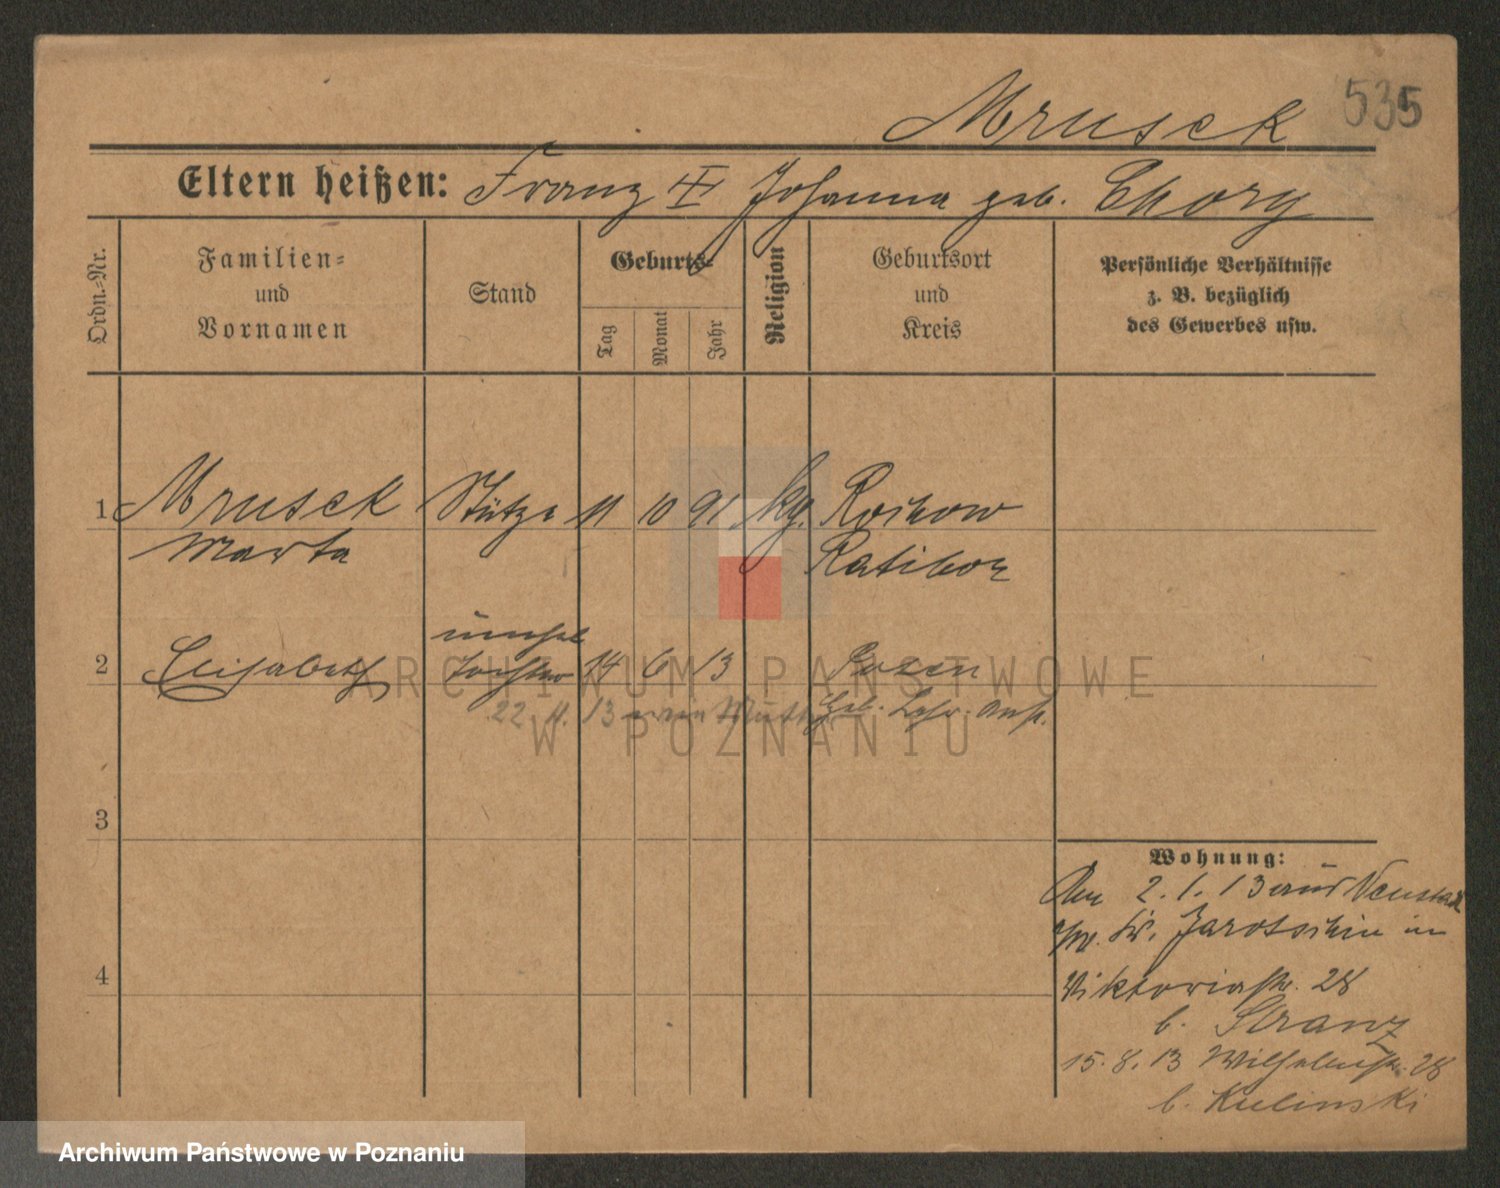 Mruseck 535
Eltern heißen: Franz ‡ Johanna geb. Chory
Ordn.-Nr.
Familien-
und
Vornamen
Stand
Geburts-
Tag
Monat
Jahr
Religion
Geburtsort
und
Kreis
Persönliche Verhältnisse
z. B. bezüglich
des Gewerbes usw.
1 Mruseck Stütze 11 10 91 kg. Roschow
Marta Ratibor
unehel
2 Elisabeth Tochter 14 6 13 Posen
22. 11. 13 Mutter Heb. Lehr. Anst.
3
4
Wohnung:
Am 2. 1. 13 aus Neustadt
Kr. Jarotschin in
Viktoriastr. 28
b. Stranz
15. 8. 13 Wilhelmstr. 28
b. Kulinski
ARCHIWUM PAŃSTWOWE
W POZNANIU
Archiwum Państwowe w Poznaniu